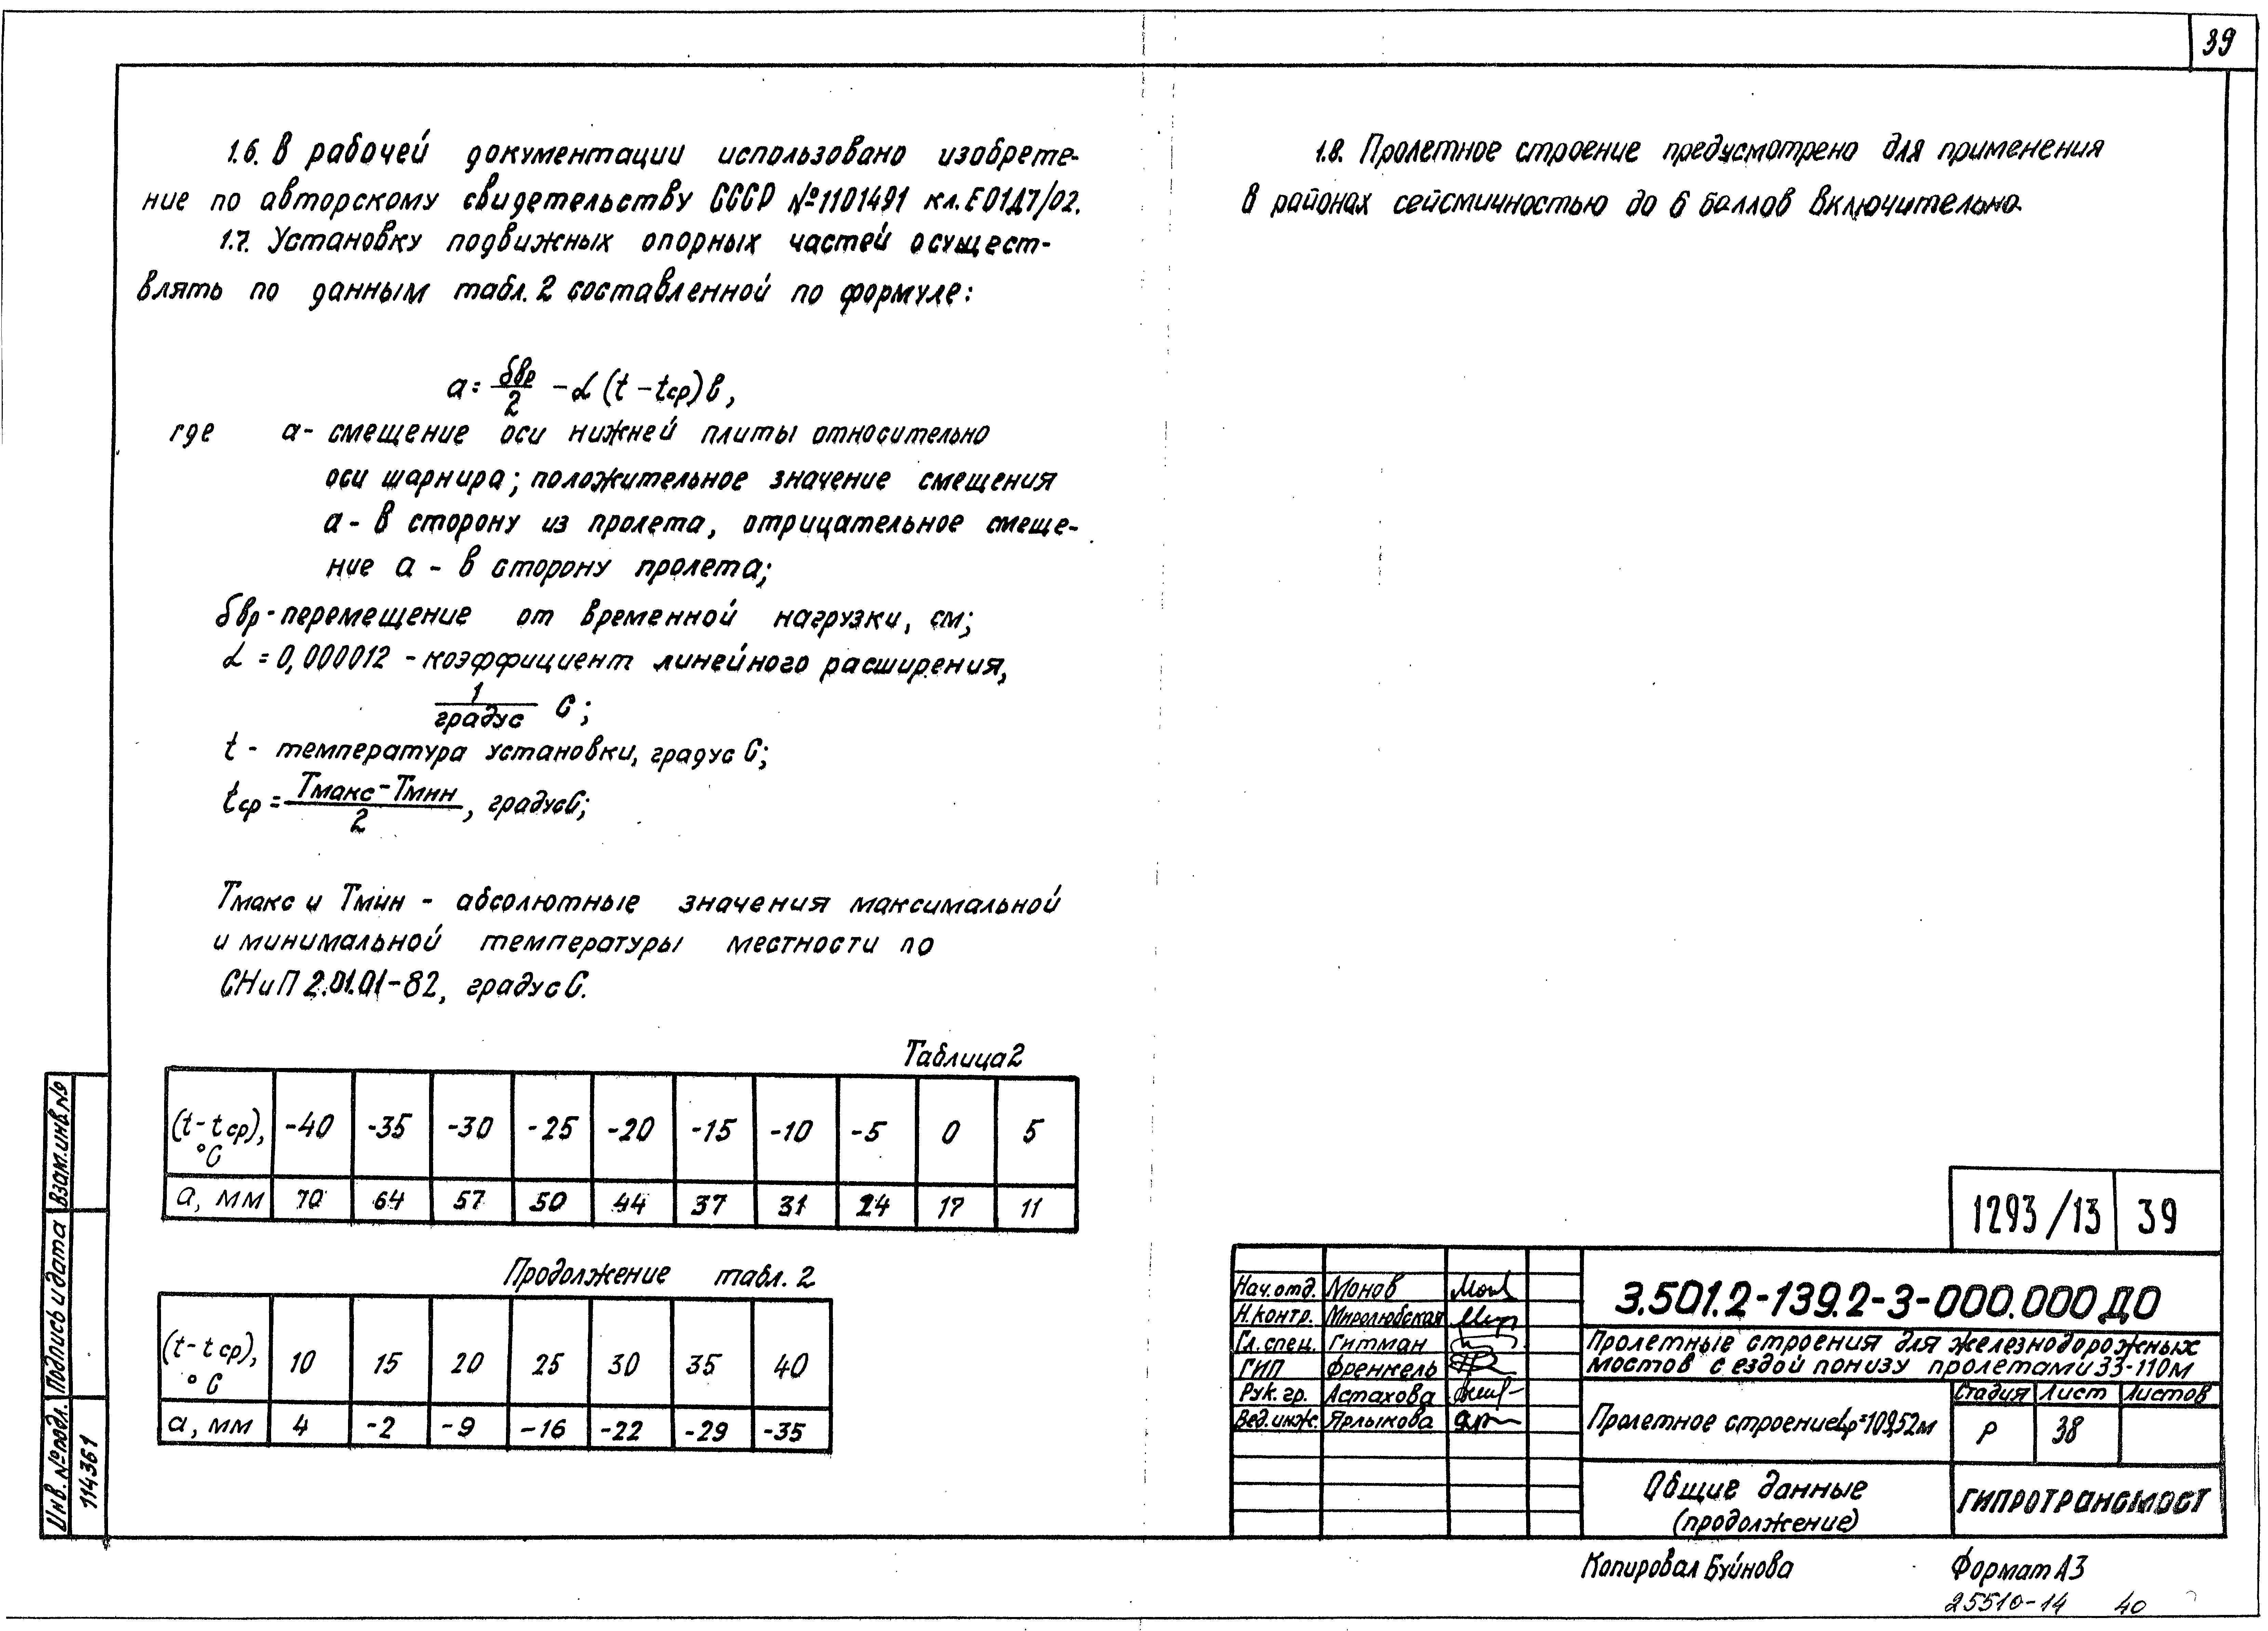 39
1.6. В рабочей документации использовано изобрете-
ние по авторскому свидетельству СССР №1101491 кл. Е01Д7/02.
1.7. Установку подвижных опорных частей осущест-
влять по данным табл. 2 составленной по формуле:
a = δвр/2 - α (t - tср) в,
где a - смещение оси нижней плиты относительно
оси шарнира; положительное значение смещения
а - в сторону из пролета, отрицательное смеще-
ние а - в сторону пролета;
δвр - перемещение от временной нагрузки, см;
α = 0,000012 - коэффициент линейного расширения,
1/градус С;
t - температура установки, градус С;
tср = Тмакс - Тмин/2, градус С;
Тмакс и Тмин - абсолютные значения максимальной
и минимальной температуры местности по
СНиП 2.01.01-82, градус С.
Таблица 2
(t - tср), °С -40 -35 -30 -25 -20 -15 -10 -5 0 5
а, мм 70 64 57 50 44 37 31 24 17 11
Продолжение табл. 2
(t - tср), °С 10 15 20 25 30 35 40
а, мм 4 -2 -9 -16 -22 -29 -35
1.8. Пролетное строение предусмотрено для применения
в районах сейсмичностью до 6 баллов включительно.
Взам.инв.№
Подпись и дата
Инв. № подл.
114361
1293/13 39
Нач.отд. Монов
Н.контр. Миролюбская
Гл.спец. Гитман
ГИП Френкель
Рук.гр. Астахова
Вед.инж. Ярлыкова
3.501.2-139.2-3-000.000 ДО
Пролетные строения для железнодорожных
мостов с ездой понизу пролетами 33-110м
Пролетное строение Lр=109,52м
Стадия Лист Листов
Р 38
Общие данные
(продолжение)
ГИПРОТРАНСМОСТ
Копировал Буйнова Формат А3
25510-14 40